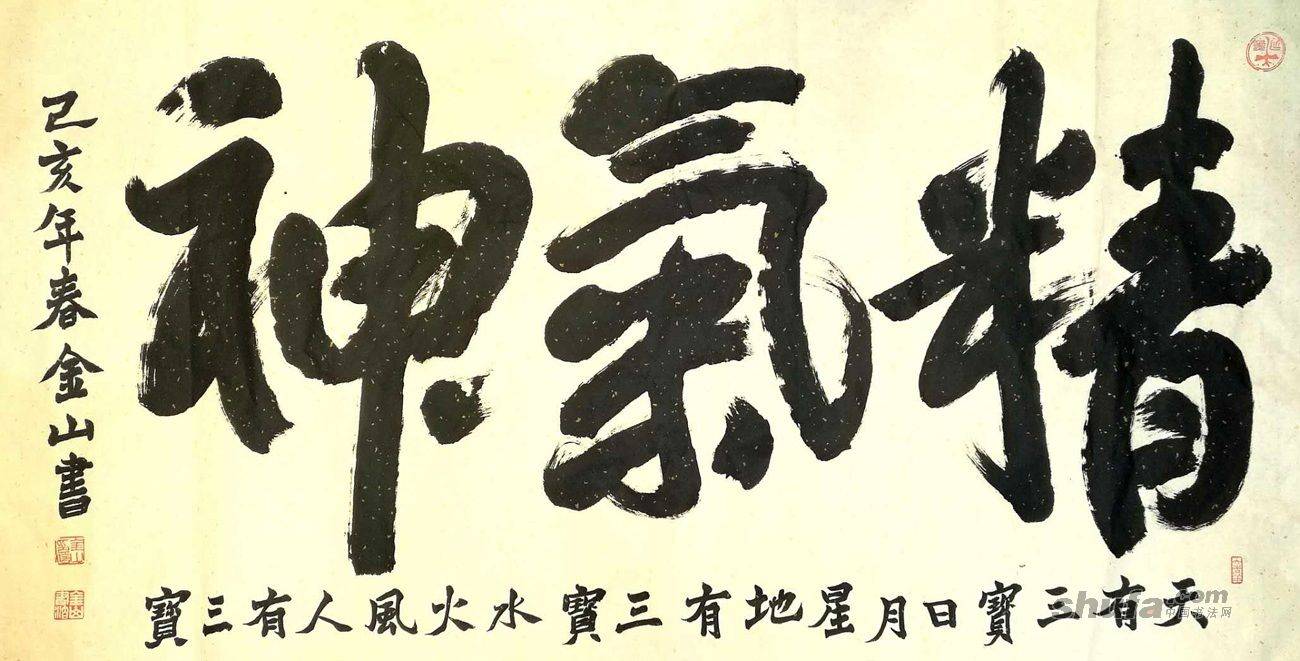 精氣神
天有三寶日月星地有三寶水火風人有三寶
己亥年春金山書
shufa.com
中国书法网